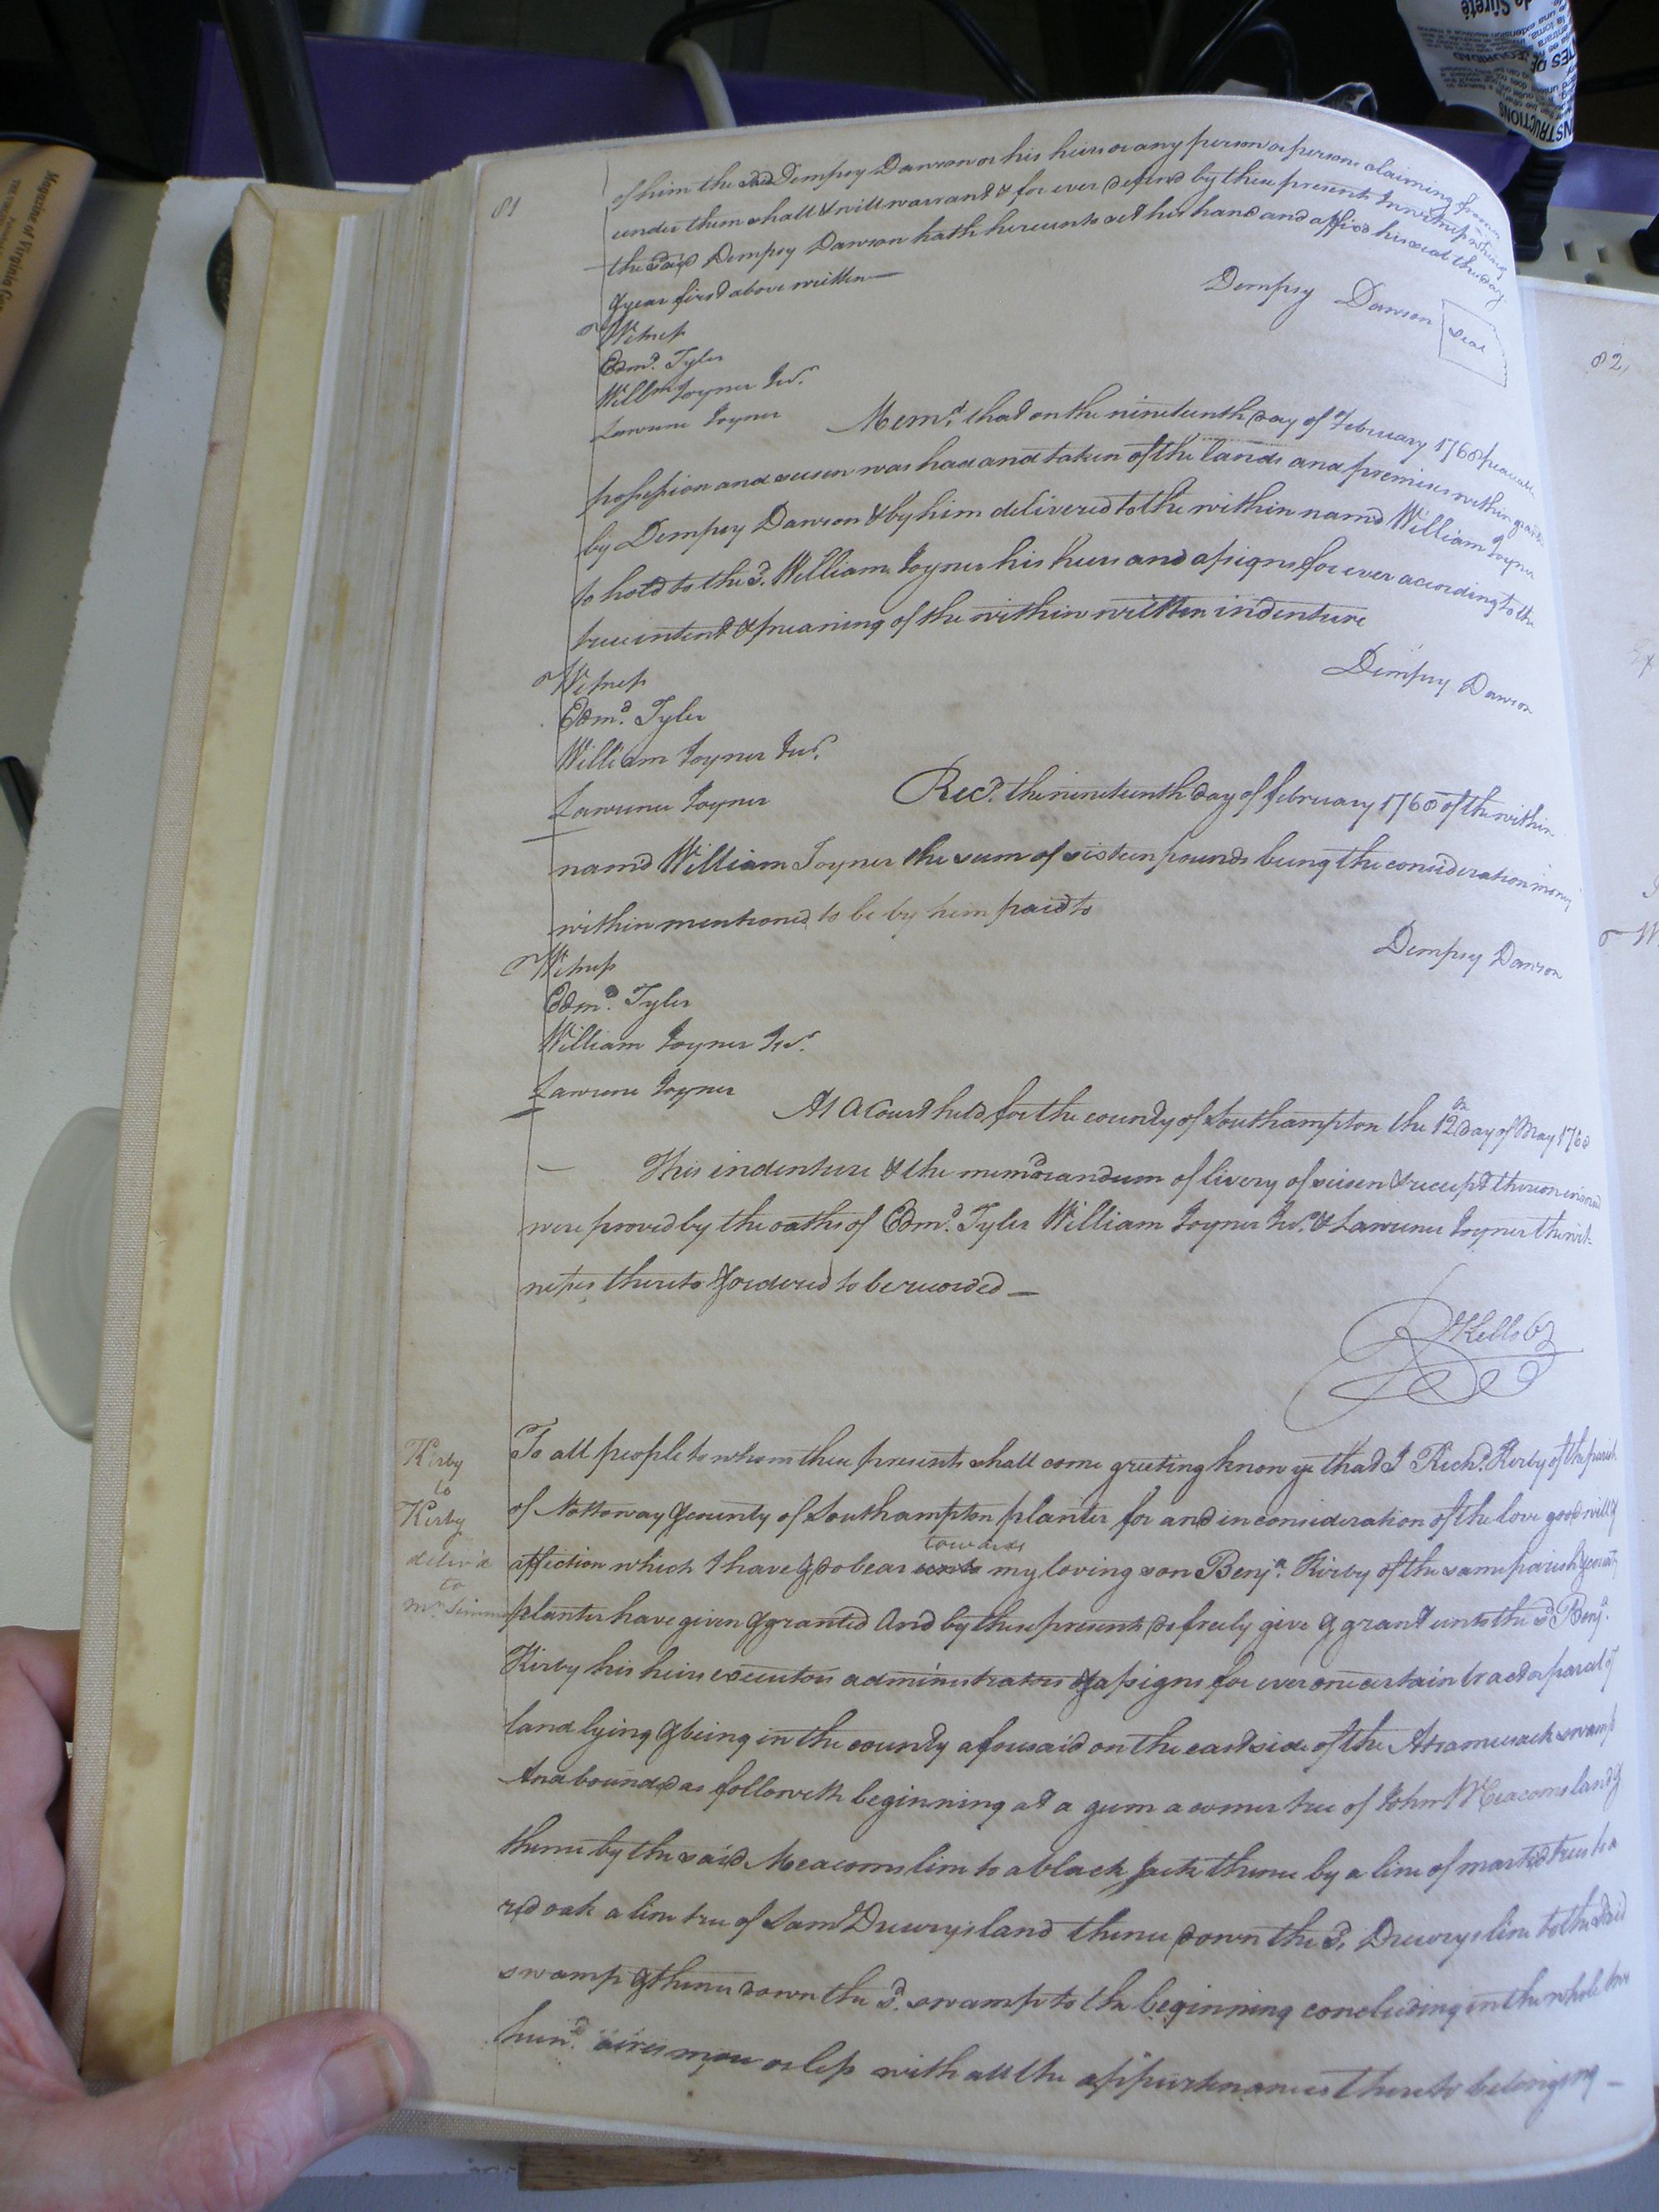 81
of him the said Dempsey Dawson or his heirs or any person or persons claiming from
under them shall & will warrant & for ever defend by these presents In witness whereof
the said Dempsey Dawson hath hereunto set his hand and affixd his seal the day
& year first above written —
Dempsey Dawson Seal
Witness
Edmd. Tyler
Willm Joyner Jur.
Lawrence Joyner
Memd. that on the nineteenth day of February 1768 peaceable
possession and seisen was had and taken of the lands and premises within
by Dempsey Dawson & by him delivered to the within namd William Joyner
to hold to the sd. William Joyner his heirs and assigns for ever according to the
true intent & meaning of the within written indenture
Dempsey Dawson
Witness
Edmd. Tyler
William Joyner Jur.
Lawrence Joyner
Recd. the nineteenth day of february 1768 of the within
namd William Joyner the sum of sixteen pounds being the consideration money
within mentioned to be by him paid to
Dempsey Dawson
Witness
Edmd. Tyler
William Joyner Jur.
Lawrence Joyner
At a Court held for the county of Southampton the 12th day of May 1768
This indenture & the memdorandum of livery of seisen & receipt thereon
were proved by the oaths of Edmd. Tyler William Joyner Jur. & Lawrence Joyner the wit-
nesses thereto & ordered to be recorded —
R Kello
Kirby
to
Kirby
deliv'd
to
Mr
To all people to whom these presents shall come greeting know ye that I Richd. Kirby of the parish
of Nottoway & county of Southampton planter for and in consideration of the love good will &
affection which I have & do bear towards my loving son Benja. Kirby of the same parish & county
planter have given & granted And by these presents do freely give & grant unto the sd Benja.
Kirby his heirs executors administrators & assigns for ever one certain tract or parcel of
land lying & being in the county aforesaid on the east side of the swamp
And bounded as followeth beginning at a gum a corner tree of John Meacoms land &
thence by the said Meacoms line to a black Jack thence by a line of markd trees to a
red oak a line tree of Saml Drewrys land thence down the sd. Drewrys line to the said
swamp & thence down the sd. swamp to the beginning concluding in the whole two
hund. acres more or less with all the appurtenances thereto belonging —
82,